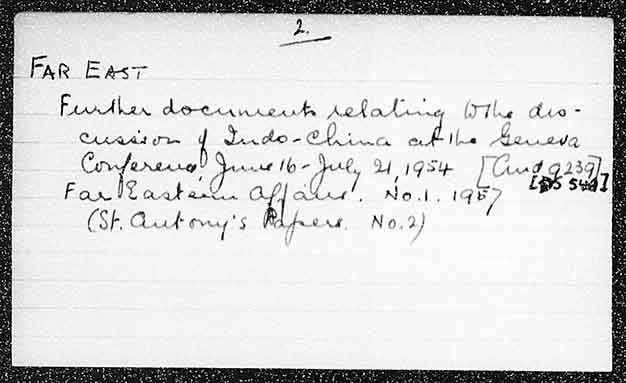 2.
FAR EAST
Further documents relating to the dis-
cussion of Indo-China at the Geneva
Conference June 16-July 21, 1954 [Cmd 9239]
Far Eastern Affairs. No.1. 1957
(St. Antony's Papers. No.2)